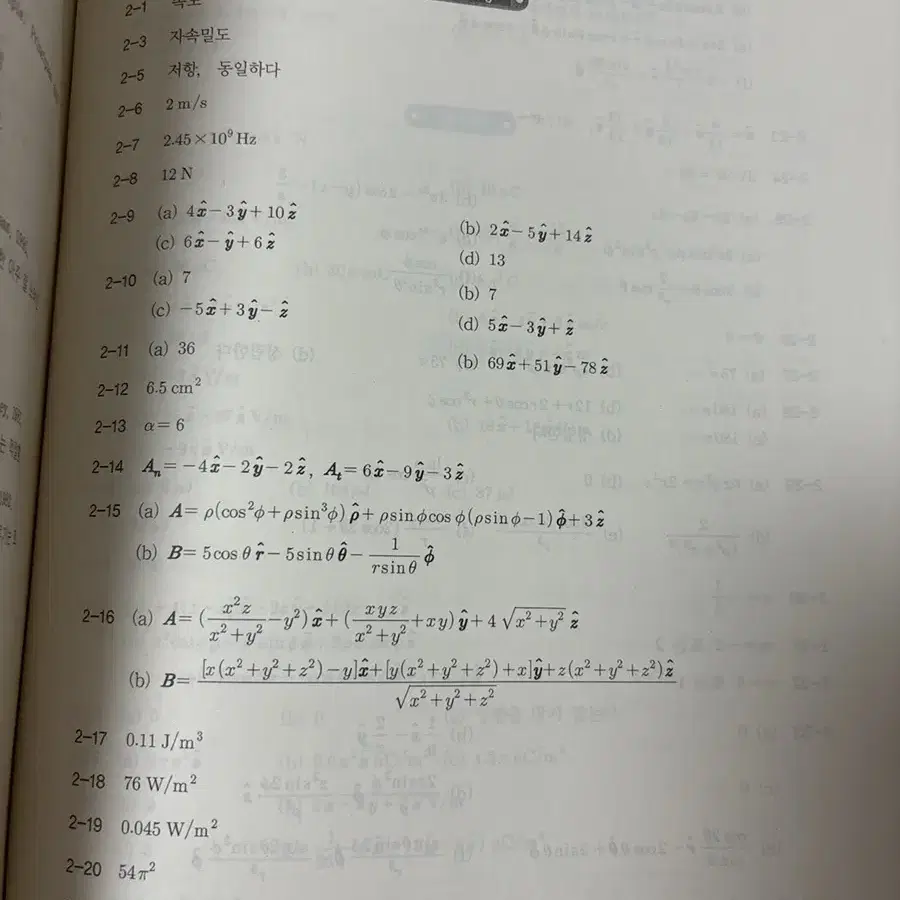 2-1
2-3 자속밀도
2-5 저항, 동일하다
2-6 2 m/s
2-7 2.45×10⁹ Hz
2-8 12 N
2-9 (a) 4x̂−3ŷ+10ẑ (b) 2x̂−5ŷ+14ẑ
(c) 6x̂−ŷ+6ẑ (d) 13
2-10 (a) 7 (b) 7
(c) −5x̂+3ŷ−ẑ (d) 5x̂−3ŷ+ẑ
2-11 (a) 36 (b) 69x̂+51ŷ−78ẑ
2-12 6.5 cm²
2-13 α=6
2-14 Aₙ=−4x̂−2ŷ−2ẑ, Aₜ=6x̂−9ŷ−3ẑ
2-15 (a) A=ρ(cos²ϕ+ρsin³ϕ)ρ̂+ρsinϕcosϕ(ρsinϕ−1)ϕ̂+3ẑ
(b) B=5cosθ r̂−5sinθ θ̂−1/(rsinθ) ϕ̂
2-16 (a) A=(x²z/(x²+y²)−y²)x̂+(xyz/(x²+y²)+xy)ŷ+4√(x²+y²) ẑ
(b) B=([x(x²+y²+z²)−y]x̂+[y(x²+y²+z²)+x]ŷ+z(x²+y²+z²)ẑ)/√(x²+y²+z²)
2-17 0.11 J/m³
2-18 76 W/m²
2-19 0.045 W/m²
2-20 54π²